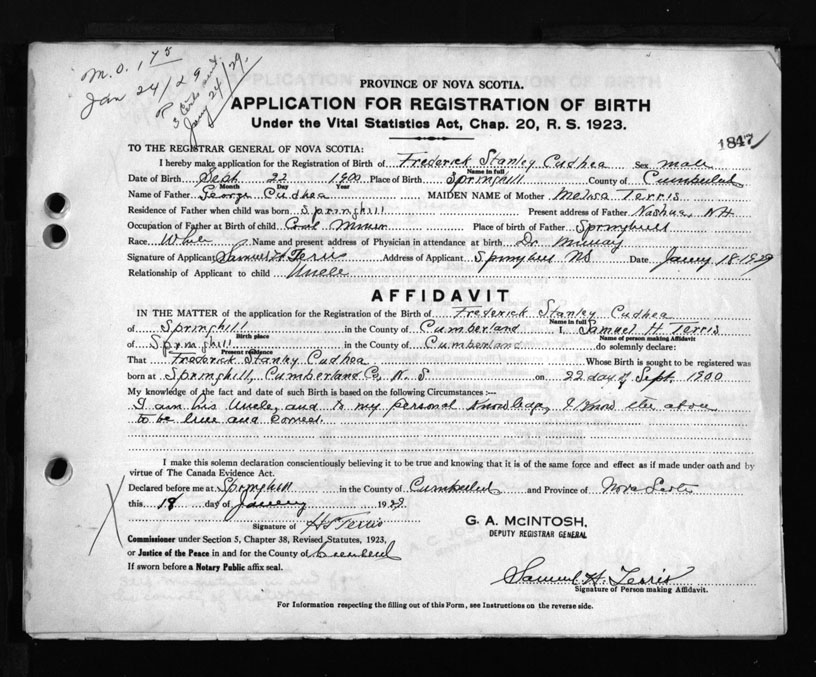 M.O. 1 75
Jan 24/29
3 Certs sent
Jany 24/29.
PROVINCE OF NOVA SCOTIA.
APPLICATION FOR REGISTRATION OF BIRTH
Under the Vital Statistics Act, Chap. 20, R. S. 1923.
1847
TO THE REGISTRAR GENERAL OF NOVA SCOTIA:
I hereby make application for the Registration of Birth of Frederick Stanley Cudhea Sex male
Name in full
Date of Birth Sept 22 1900 Place of Birth Springhill County of Cumberland
Month Day Year
Name of Father George Cudhea MAIDEN NAME of Mother Melissa Terris
Residence of Father when child was born Springhill Present address of Father Nashua, NH
Occupation of Father at Birth of child Coal Miner Place of birth of Father Springhill
Race White Name and present address of Physician in attendance at birth Dr. Murray
Signature of Applicant Samuel H Terris Address of Applicant Springhill NS Date Janry 18-1929
Relationship of Applicant to child Uncle
AFFIDAVIT
IN THE MATTER of the application for the Registration of the Birth of Frederick Stanley Cudhea
Name in full
of Springhill in the County of Cumberland I, Samuel H Terris
Birth place Name of person making Affidavit
of Springhill in the County of Cumberland do solemnly declare:
Present residence
That Frederick Stanley Cudhea Whose Birth is sought to be registered was
born at Springhill, Cumberland Co, N. S on 22 day of Sept. 1900
My knowledge of the fact and date of such Birth is based on the following Circumstances :—
I am his Uncle, and to my personal Knowledge, I Know the above
to be true and correct.
I make this solemn declaration conscientiously believing it to be true and knowing that it is of the same force and effect as if made under oath and by
virtue of The Canada Evidence Act.
Declared before me at Springhill in the County of Cumberland and Province of Nova Scotia
this 18 day of January 1929
Signature of H S Terris
G. A. McINTOSH,
DEPUTY REGISTRAR GENERAL
Commissioner under Section 5, Chapter 38, Revised Statutes, 1923,
or Justice of the Peace in and for the County of Cumberland
If sworn before a Notary Public affix seal.
Samuel H. Terris
Signature of Person making Affidavit.
For Information respecting the filling out of this Form, see Instructions on the reverse side.